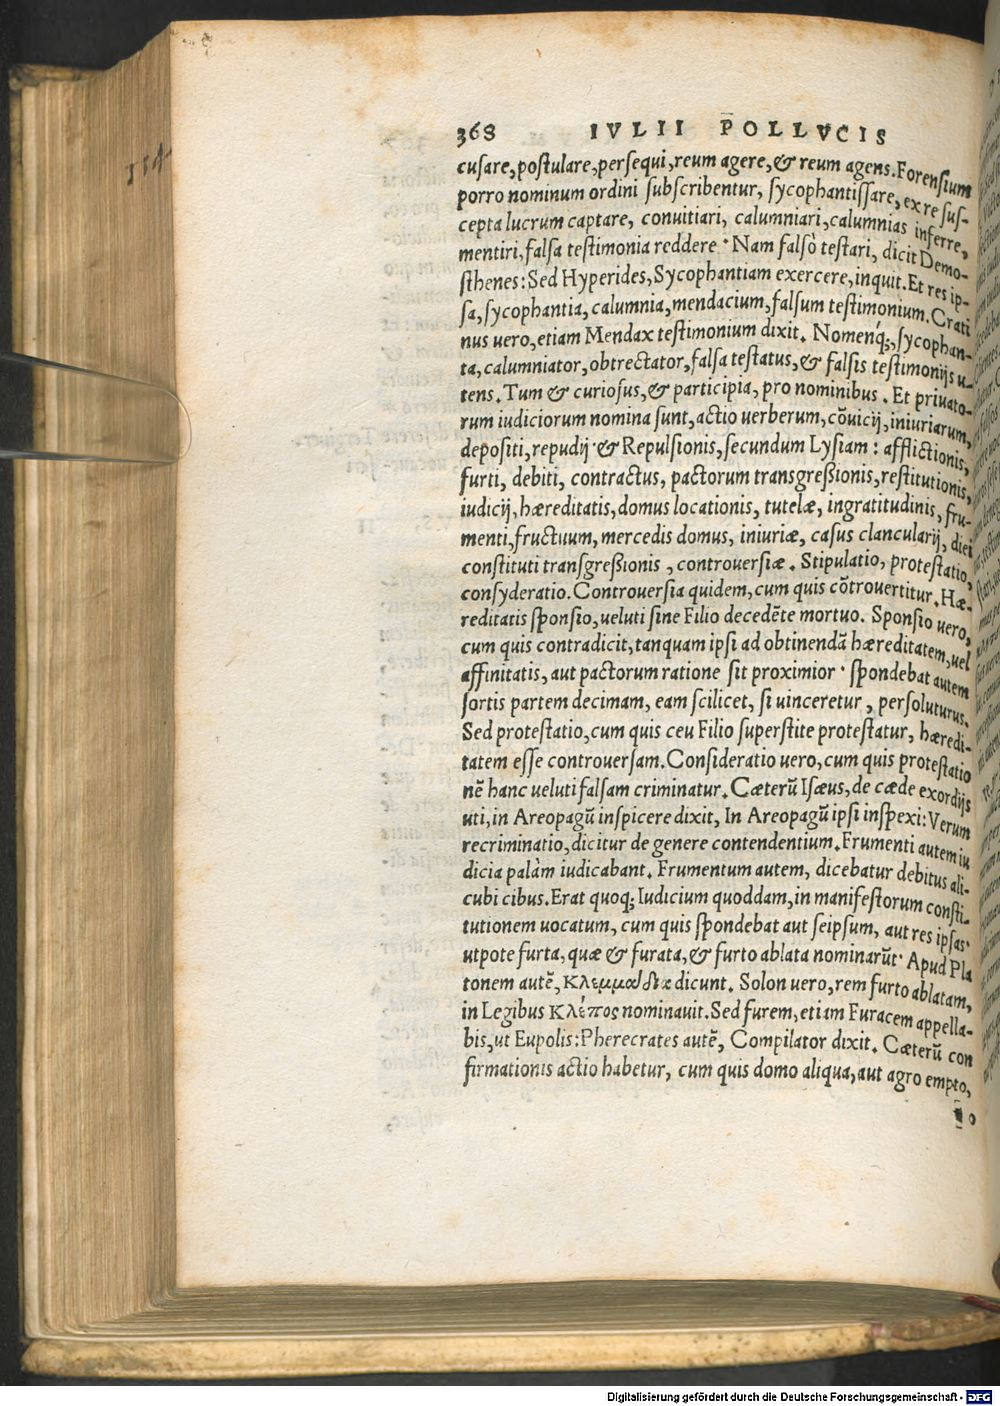 368 IVLII POLLVCIS
cusare, postulare, persequi, reum agere, & reum agens. Forensium
porro nominum ordini subscribentur, sycophantissare, ex re sus-
cepta lucrum captare, conuitiari, calumniari, calumnias inferre,
mentiri, falsa testimonia reddere · Nam falsò testari, dicit Demo-
sthenes: Sed Hyperides, Sycophantiam exercere, inquit. Et res ip-
sa, sycophantia, calumnia, mendacium, falsum testimonium. Crati
nus uero, etiam Mendax testimonium dixit. Nomenq́;, sycophan-
ta, calumniator, obtrectator, falsa testatus, & falsis testimonijs u-
tens. Tum & curiosus, & participia, pro nominibus. Et priuato-
rum iudiciorum nomina sunt, actio uerberum, cōuicij, iniuriarum,
depositi, repudij · & Repulsionis, secundum Lysiam: afflictionis,
furti, debiti, contractus, pactorum transgreßionis, restitutionis,
iudicij, hæreditatis, domus locationis, tutelæ, ingratitudinis, fru-
menti, fructuum, mercedis domus, iniuriæ, casus clancularij, diei
constituti transgreßionis, controuersiæ. Stipulatio, protestatio,
consyderatio. Controuersia quidem, cum quis cōtrouertitur. Hæ-
reditatis sponsio, ueluti sine Filio decedēte mortuo. Sponsio uero,
cum quis contradicit, tanquam ipsi ad obtinendā hæreditatem, uel
affinitatis, aut pactorum ratione sit proximior · spondebat autem
sortis partem decimam, eam scilicet, si uinceretur, persoluturus.
Sed protestatio, cum quis ceu Filio superstite protestatur, hæredi-
tatem esse controuersam. Consideratio uero, cum quis protestatio
nē hanc ueluti falsam criminatur. Cæterū Isæus, de cæde exordijs
uti, in Areopagū inspicere dixit, In Areopagū ipsi inspexi: Verum
recriminatio, dicitur de genere contendentium. Frumenti autem iu
dicia palàm iudicabant. Frumentum autem, dicebatur debitus ali-
cubi cibus. Erat quoq; Iudicium quoddam, in manifestorum consti-
tutionem uocatum, cum quis spondebat aut seipsum, aut res ipsas·
utpote furta, quæ & furata, & furto ablata nominarūt · Apud Pla
tonem autē, Κλεμμαδια dicunt. Solon uero, rem furto ablatam,
in Legibus Κλέπος nominauit. Sed furem, etiam Furacem appella-
bis, ut Eupolis: Pherecrates autē, Compilator dixit. Cæterū con
firmationis actio habetur, cum quis domo aliqua, aut agro empto,
Digitalisierung gefördert durch die Deutsche Forschungsgemeinschaft - DFG